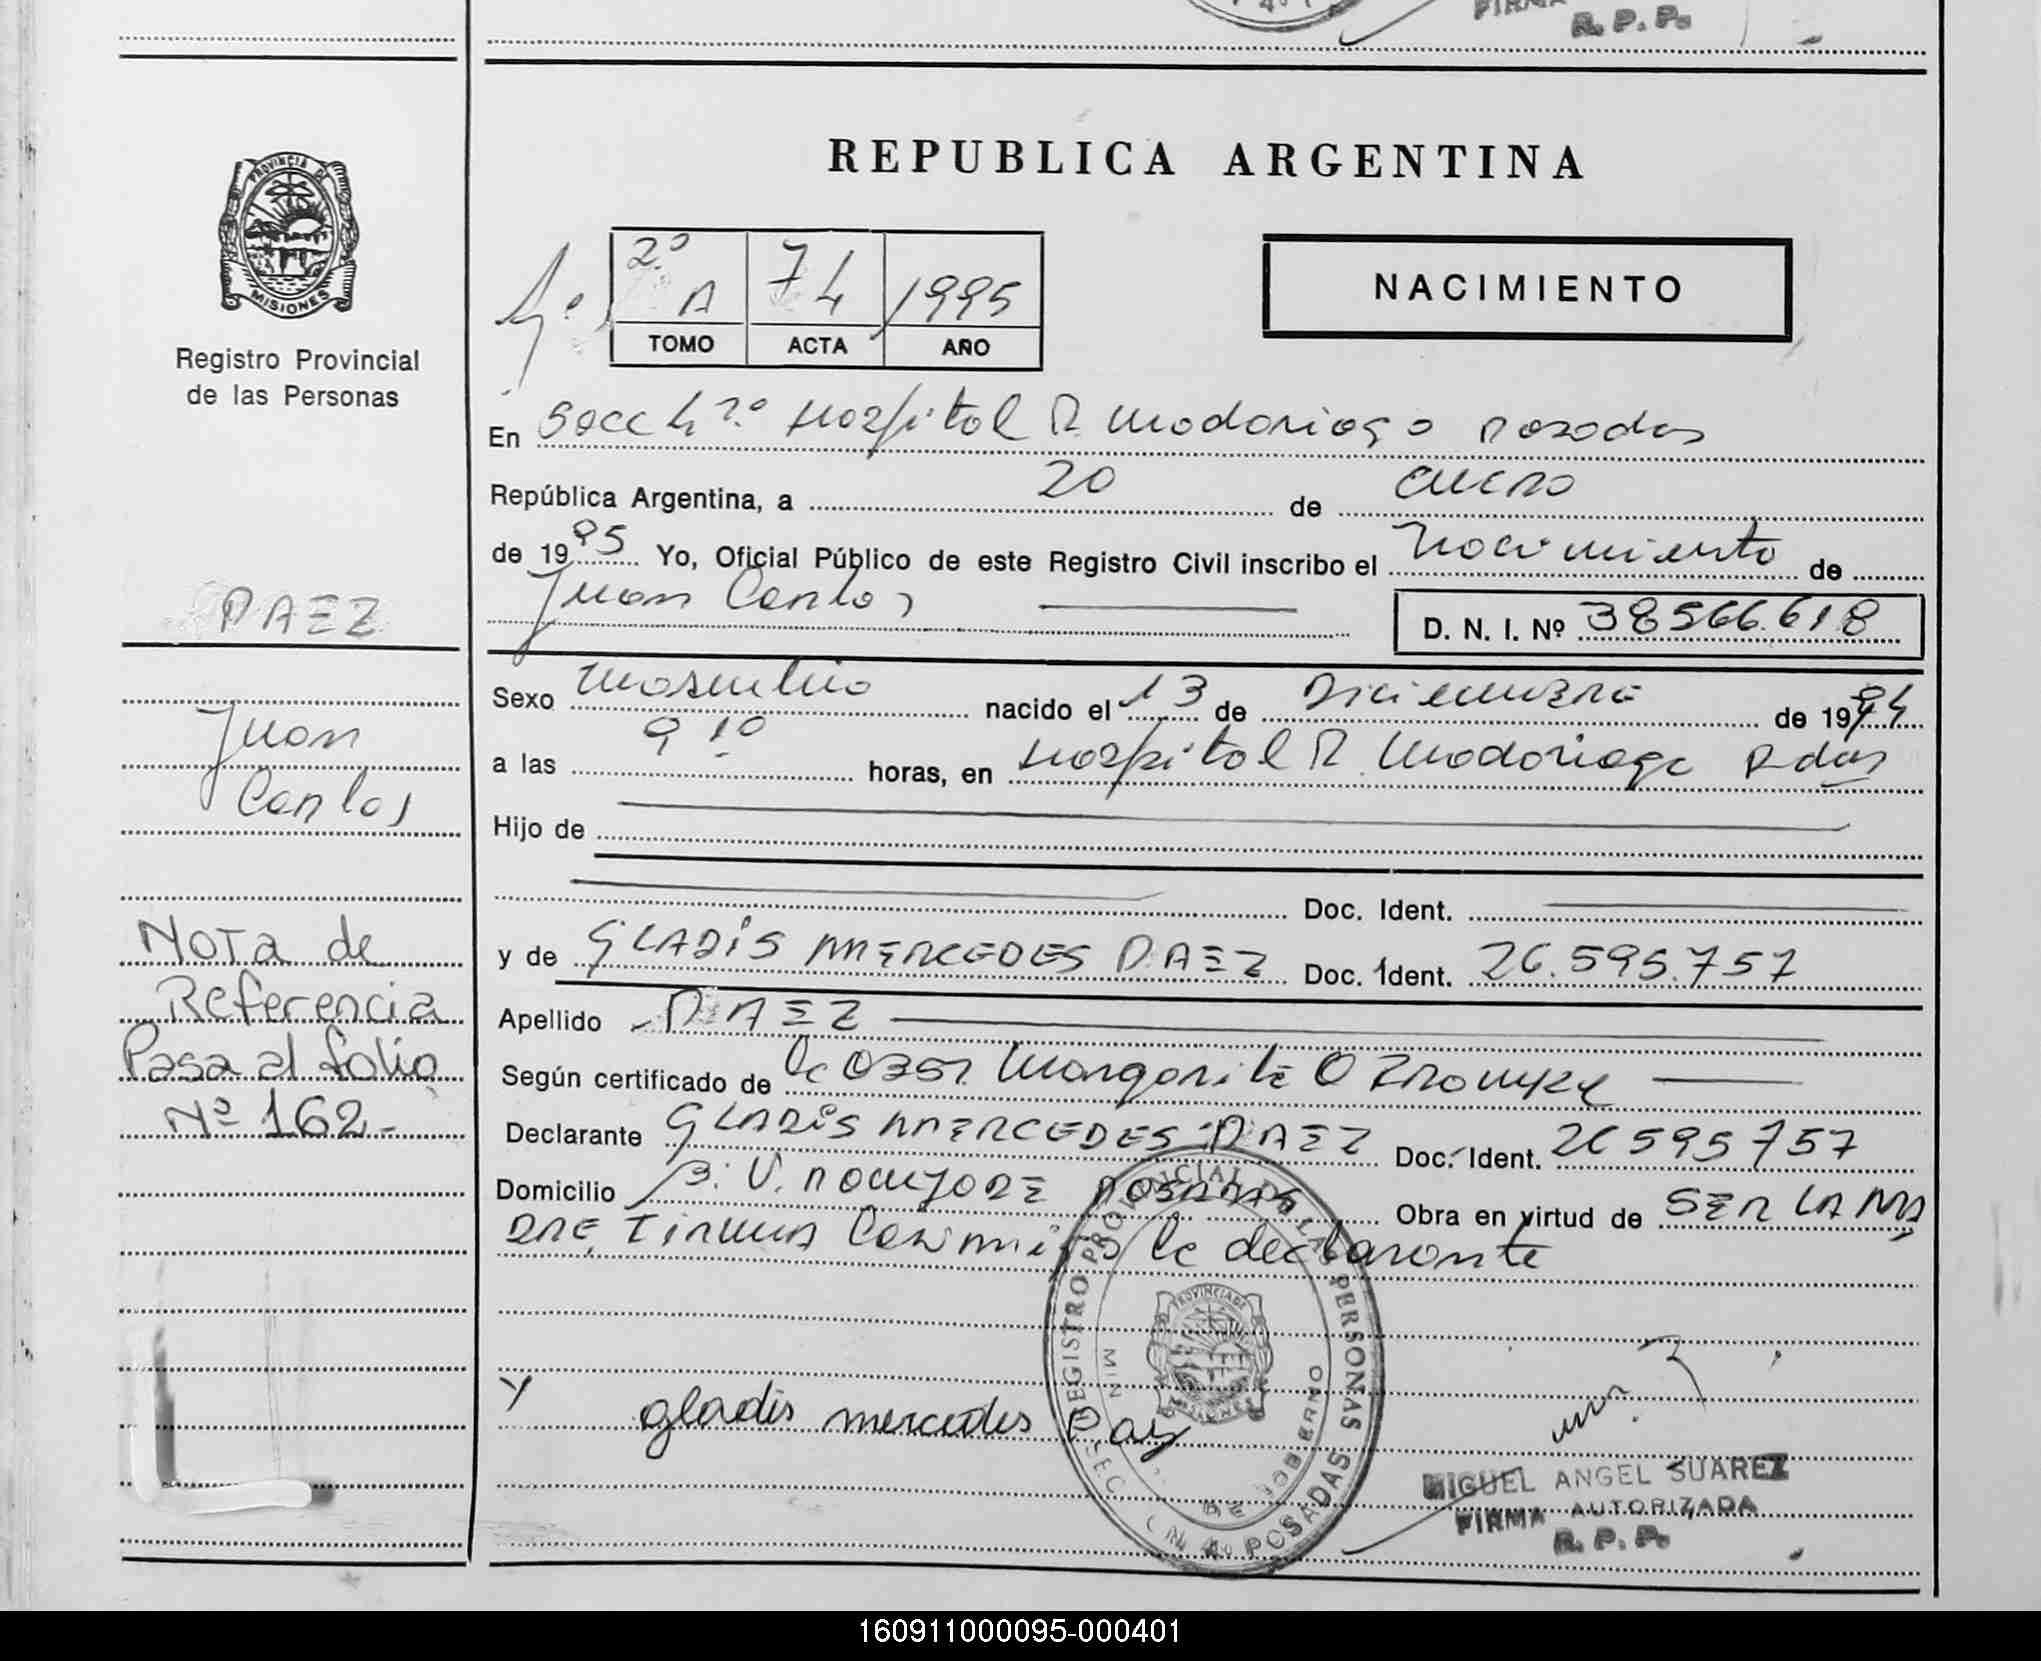 FIRMA
R. P. P.
REPUBLICA ARGENTINA
PROVINCIA DE
MISIONES
Registro Provincial
de las Personas
2º A 74 1995
TOMO ACTA AÑO
NACIMIENTO
En Secc 4ª Hospital R. Madariaga Posadas
República Argentina, a 20 de enero
de 1995 Yo, Oficial Público de este Registro Civil inscribo el Nacimiento de
Juan Carlos D. N. I. Nº 38566.618
Sexo masculino nacido el 13 de Diciembre de 1994
a las 9 10 horas, en Hospital R. Madariaga Pdas
Hijo de
Doc. Ident.
y de GLADIS MERCEDES PAEZ Doc. Ident. 26.595.757
Apellido PAEZ
Según certificado de la Obst Margarita O
Declarante GLADIS MERCEDES PAEZ Doc. Ident. 26595757
Domicilio B: V. POSADAS Obra en virtud de SER LA MA
DRE, FIRMA Conmigo la declarante
gladis mercedes Paez
REGISTRO PROVINCIAL DE LAS PERSONAS
PROVINCIA DE
MISIONES
MIN DE GOBIERNO
POSADAS
MIGUEL ANGEL SUAREZ
FIRMA AUTORIZADA
R. P. P.
PAEZ
Juan
Carlos
Nota de
Referencia
Pasa al folio
Nº 162-
160911000095-000401